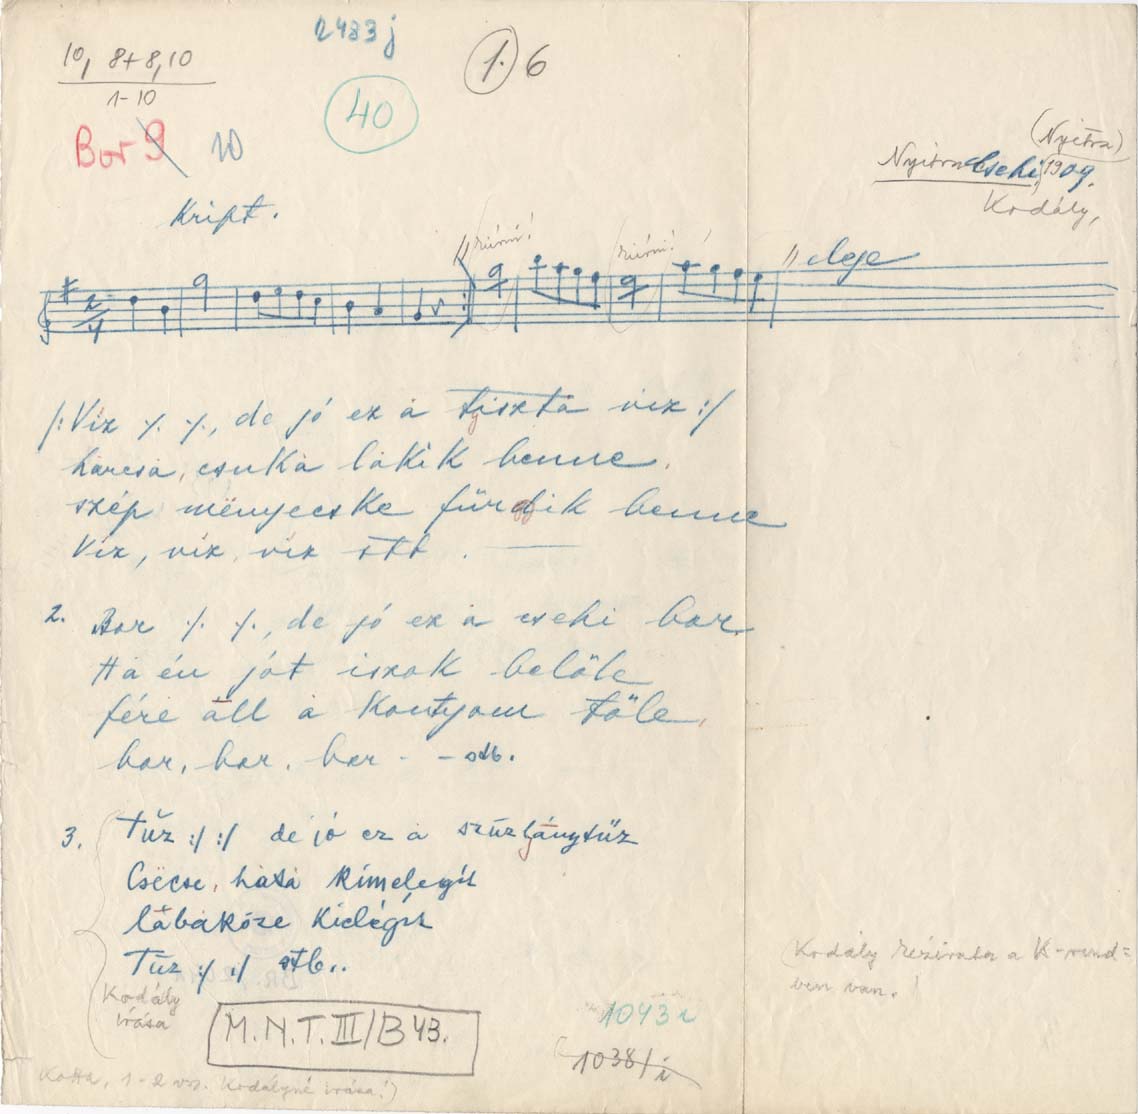 2483 j
10, 8+8,10
1-10
1. 6
40
Bor 9 10
(Nyitra)
Nyitra Csehi, 1909.
Kodály,
Kript.
kiírni! kiírni! // eleje
2/4
/: Víz ·/. ·/., de jó ez a tyiszta víz :/
harcsa, csuka lakik benne,
szép mënyecske fürgyik benne
Víz, víz, víz stb.
2. Bor ·/. ·/., de jó ez a csehi bor,
Ha én jót iszok belőle
fére áll a kontyom tőle,
bor, bor, bor - - stb.
3. Tűz :/ :/ de jó ez a szűzlánytűz
Csëcse, hasa kimelegít
lábaköze kielégít
Tűz :/ :/ stb..
Kodály
írása
(Kodály kézirata a K-rend=
ben van.)
M.N.T. III/B 43.
1043 i
1038/i
Kotta, 1-2 vsz. Kodályné írása!)